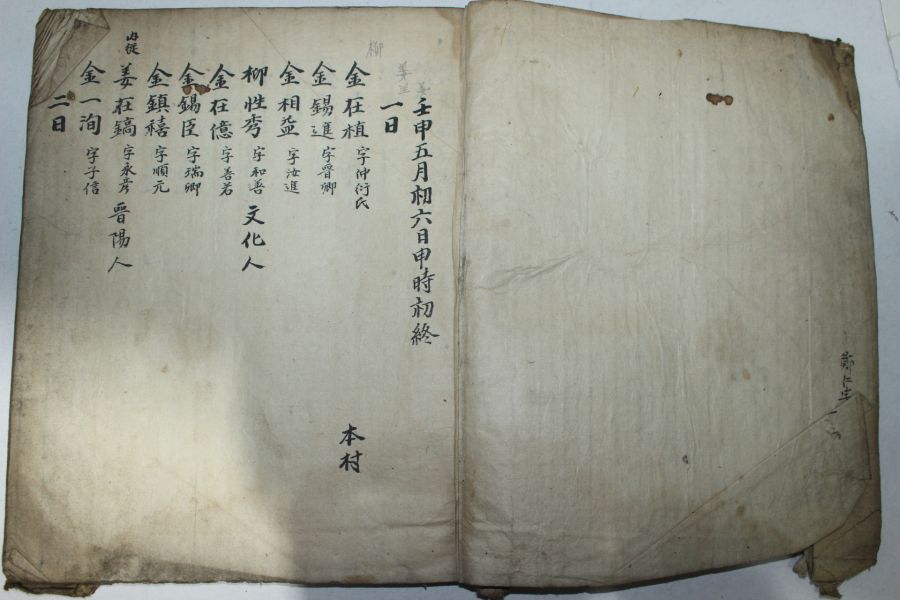 壬申五月初六日申時初終
一日
金在植 字仲衍氏 本村
金錫進 字晋卿
金相益 字汝進
柳性秀 字和善 文化人
金在億 字善若
金錫臣 字瑞卿
金鎮禧 字順元
內從 姜在鎬 字永彦 晋陽人
金一洵 字子信
二日